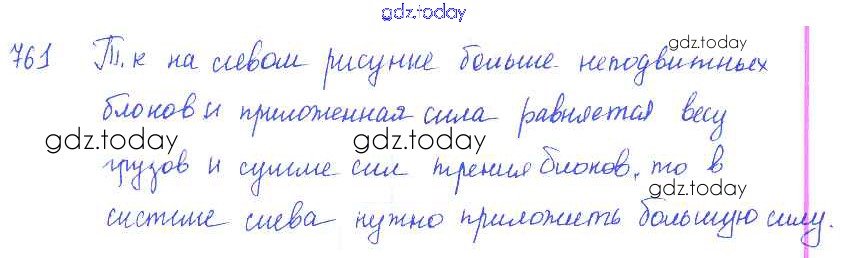 gdz.today
761 Т.к на левом рисунке больше неподвижных
gdz.today
блоков и приложенная сила равняется весу
gdz.today gdz.today
грузов и сумме сил трения блоков, то в
gdz.today
системе слева нужно приложить большую силу.